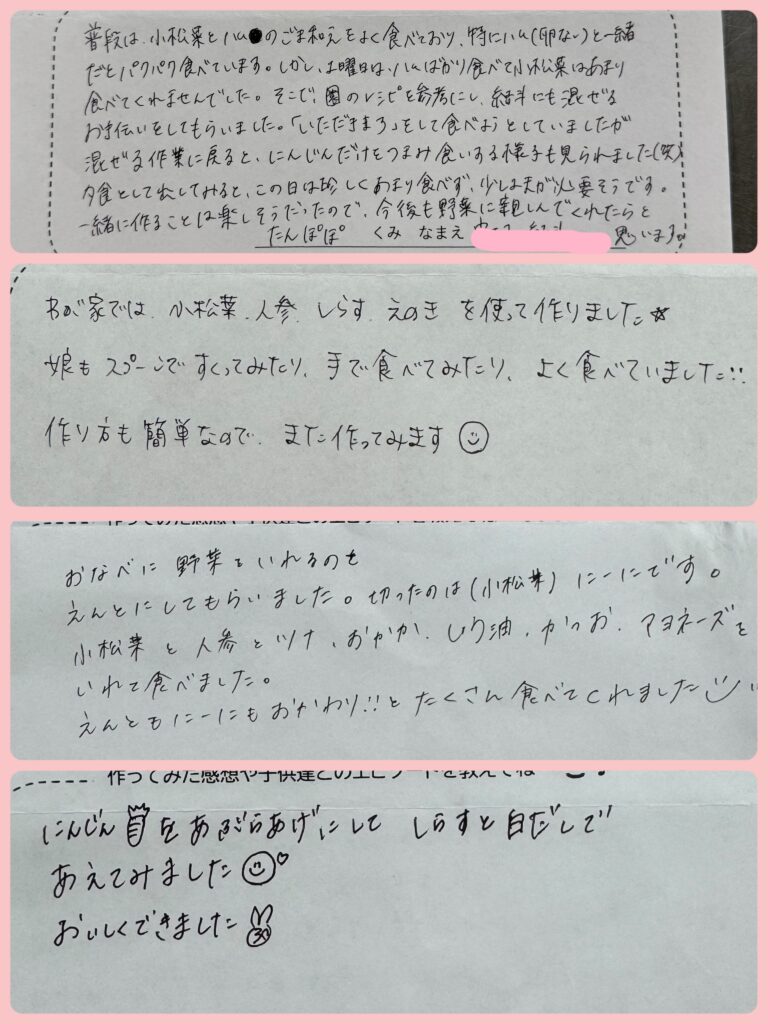 普段は、小松菜とハムのごま和えをよく食べており、特にハム(卵ない)と一緒
だとパクパク食べています。しかし、土曜日は、ハムばかり食べて小松菜はあまり
食べてくれませんでした。そこで、園のレシピを参考にし、にも混ぜる
お手伝いをしてもらいました。「いただきまろ」をして食べようとしていましたが
混ぜる作業に戻ると、にんじんだけをつまみ食いする様子も見られました(笑)
夕食として出してみると、この日は珍しくあまり食べず、少し工夫が必要そうです。
一緒に作ることは楽しそうだったので、今後も野菜に親しんでくれたらと
たんぽぽ くみ なまえ 思います。
わが家では、小松菜、人参、しらす、えのき を使って作りました☆
娘も スプーンで すくってみたり、手で食べてみたり、よく食べていました!!
作り方も簡単なので、また作ってみます
作ってみた感想や子供達とのエピソードを教えてね
おなべに 野菜をいれるのを
えんとにしてもらいました。切ったのは(小松菜) にーにです。
小松菜と人参とツナ、おかか、しょう油、かつお、マヨネーズを
いれて食べました。
えんともにーにもおかわり!!とたくさん食べてくれました
作ってみた感想や子供達とのエピソードを教えてね
にんじん をあぶらあげにして しらすと白だしで
あえてみました
おいしくできました